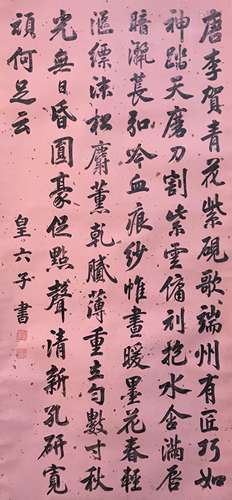 唐李賀青花紫硯歌端州有匠巧如
神踏天磨刀割紫雲傭刓抱水含滿唇
暗灑萇弘吟血痕紗惟晝暖墨花春輕
漚縹沫松麝薰乾膩薄重立勻數寸秋
光無日昏圓豪促點聲清新孔研寬
頑何足云
皇六子書